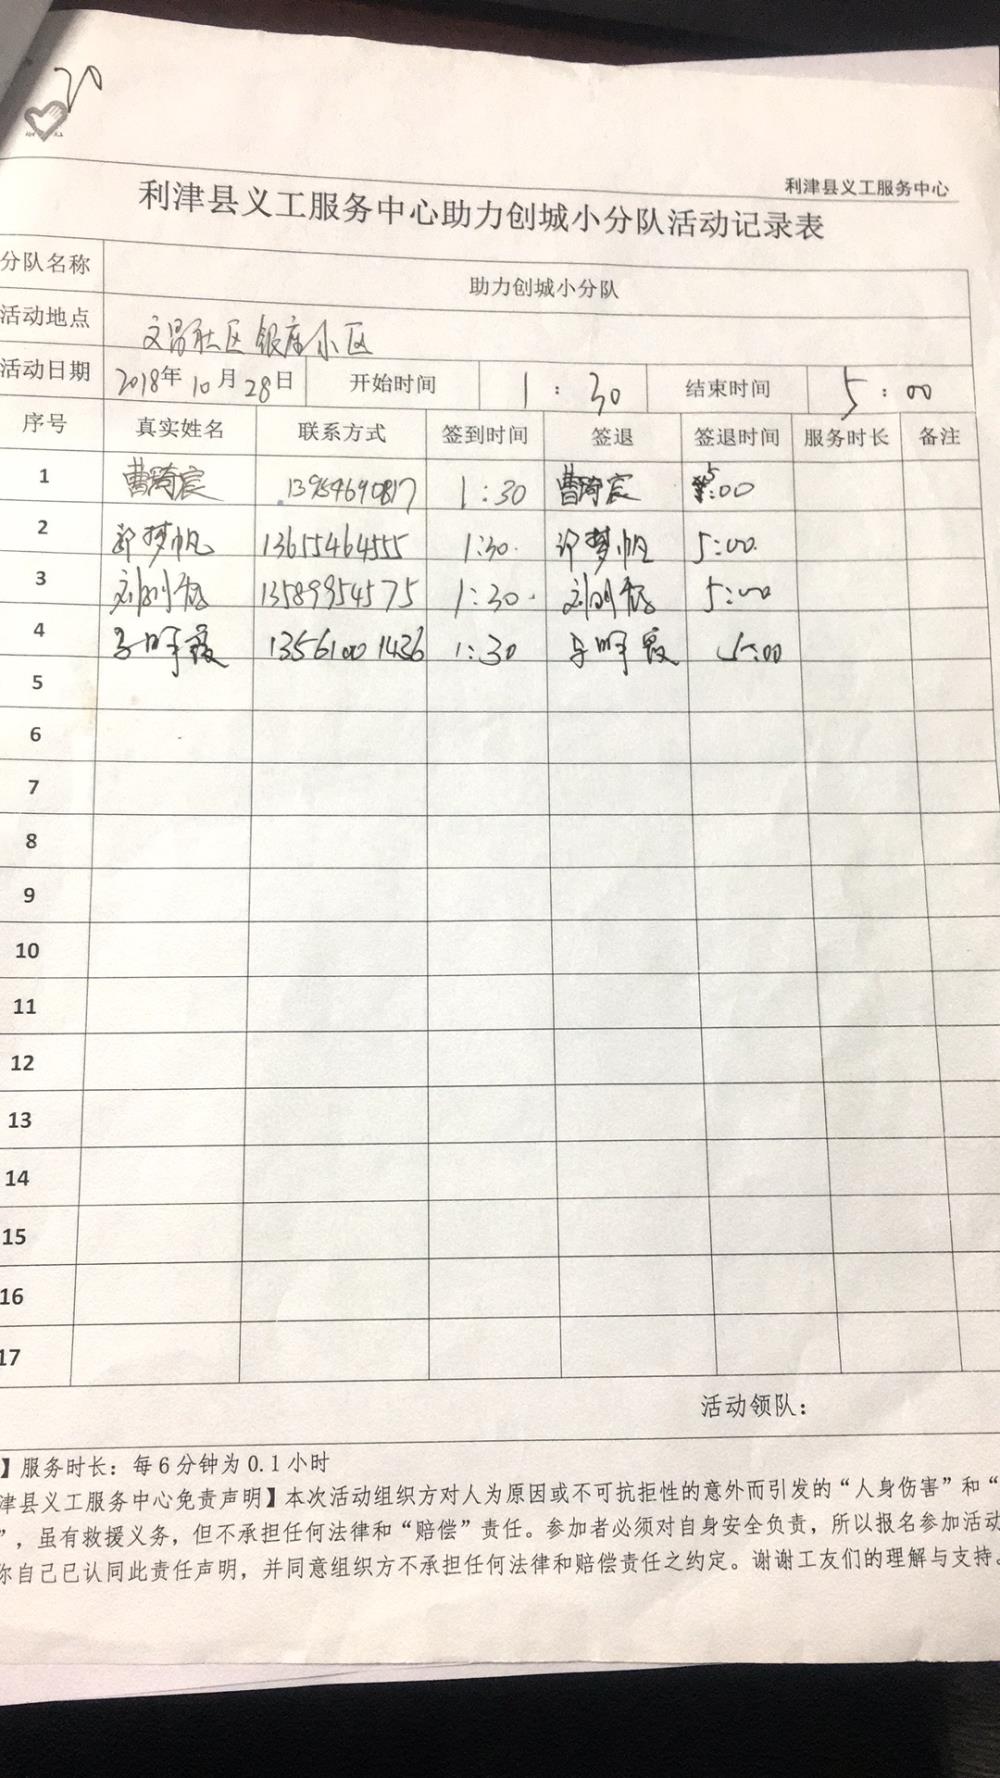 20
利津县义工服务中心
利津县义工服务中心助力创城小分队活动记录表
分队名称 助力创城小分队
活动地点 文昌社区银座小区
活动日期 2018年10月28日 开始时间 1:30 结束时间 5:00
序号 真实姓名 联系方式 签到时间 签退 签退时间 服务时长 备注
1 曹琦宸 13954690817 1:30 曹琦宸 5:00
2 梦帆 13655464555 1:30 梦帆 5:00
3 刘 13589954575 1:30 刘 5:00
4 13561001436 1:30 5:00
5
6
7
8
9
10
11
12
13
14
15
16
17
活动领队：
】服务时长：每6分钟为0.1小时
津县义工服务中心免责声明】本次活动组织方对人为原因或不可抗拒性的意外而引发的“人身伤害”和“
”，虽有救援义务，但不承担任何法律和“赔偿”责任。参加者必须对自身安全负责，所以报名参加活动
你自己已认同此责任声明，并同意组织方不承担任何法律和赔偿责任之约定。谢谢工友们的理解与支持。